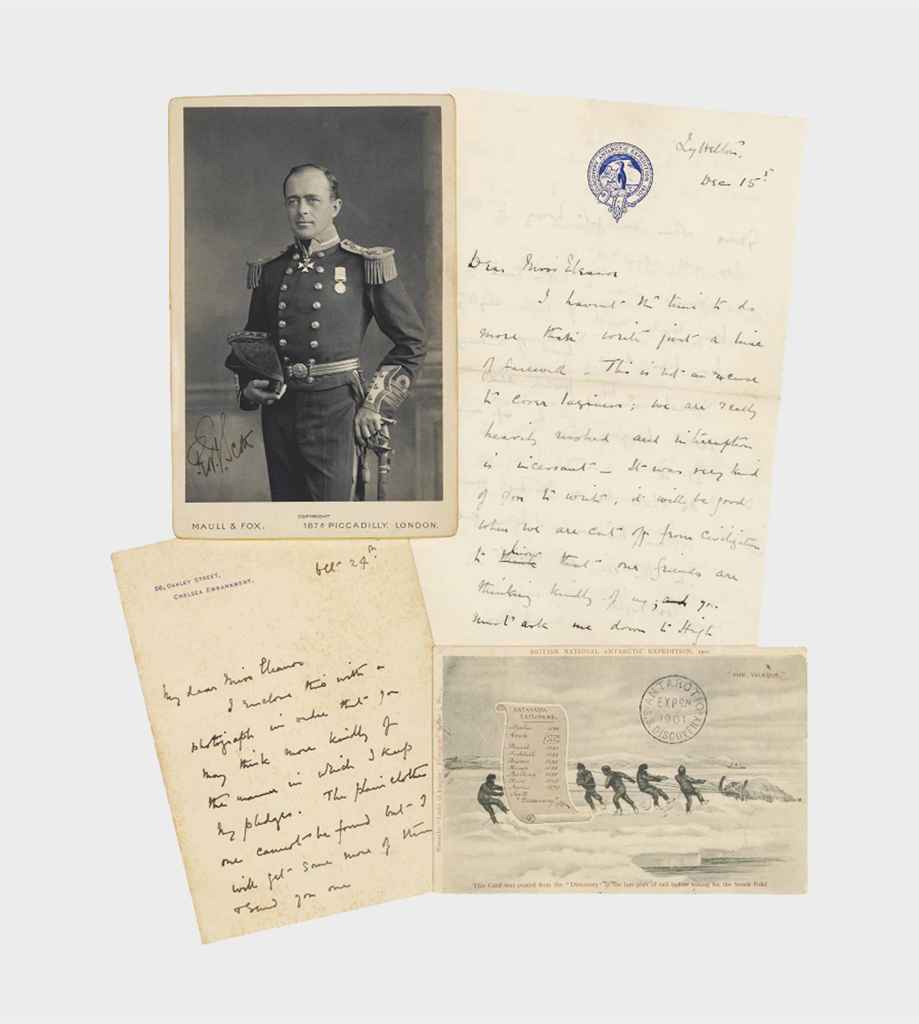 R. Scott
MAULL & FOX.
COPYRIGHT
187A PICCADILLY, LONDON.
ANTARCTIC EXPEDITION
Lyttelton,
Dec 15th
Dear Miss Eleanor
I haven't the time to do
more than write just a line
of farewell - This is not an excuse
to cover laziness; we are really
heavily rushed and interruption
is incessant - It was very kind
of you to write; it will be good
when we are cut off from civilization
to know that our friends are
thinking kindly of us; and you
must ask me down to High
56, OAKLEY STREET,
CHELSEA EMBANKMENT.
Oct 24th
My dear Miss Eleanor
I enclose this with a
photograph in order that you
may think more kindly of
the manner in which I keep
my pledges. The plain clothes
one cannot be found but I
will get some more of them
& send you one
BRITISH NATIONAL ANTARCTIC EXPEDITION, 1901
ANTARCTIC
EXPLORERS.
Cook
Scott
"Discovery"
ANTARCTIC
EXPDN
1901
DISCOVERY
This Card was posted from the "Discovery" at the last port of call before sailing for the South Pole!